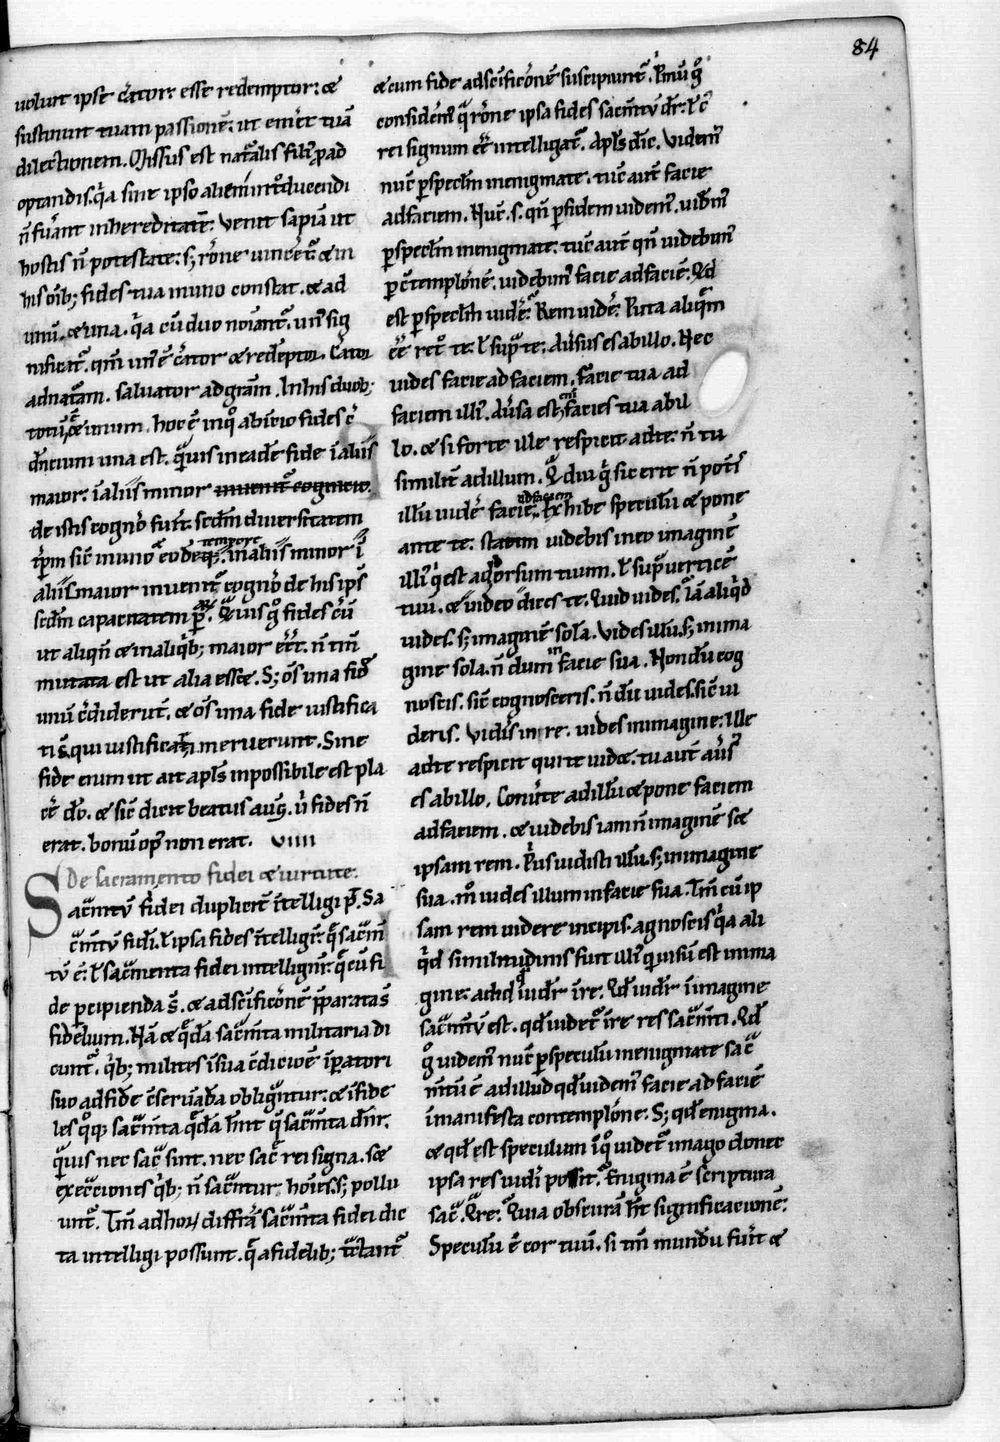 84
uoluit ipse c̄ator esse redemptor: &
sustinuit tuam passionē: ut em̄et tuā
dilectionem. Missus est nat̄alis fili' ꝓ ad
optandis. q̄a sine ipso alieni int̄oducendi
n̄ fūant in hereditatē: uenit sapiā ut
hostis n̄ potestate: s; r̄one uinc̄et̄. & in
his oīb; fides tua in uno constat. & ad
unū. & una. q̄a cū duo noīant̄. un' sig
nificat̄. qm̄ un' ē c̄ator & redēptor. C̄ator
ad nat̄am. saluator ad gr̄am. In his duob;
totū ē & unum. hoc ē in qͦ ab inicio fides c̄
dn̄cium una est. q̄uis in eadē fide ī aliis
maior. ī aliis minor inuenit̄ cognicio.
de istis cognō fuīt. scdm̄ diuersitatem
t̄pm sic̄ in uno & eodeq; tempore. in aliis minor ī
aliis maior inuenit̄ cognō de his ips̄
scdm̄ capacitatem ꝑ. Q̄uis gͦ fides c̄ū
ut aliqn̄ & in aliq̄b; maior ēet. n̄ tm̄
mutata est ut alia essæ. S; oēs una fidē
unū c̄diderunt. & oēs una fide iustifica
ti s̄ qui iustificari meruerunt. Sine
fide enim ut ait apl̄s inpossibile est pla
c̄e dō. & sic̄ dicit beatus auḡ. u' fides n̄
erat. bonū op' non erat. VIIII
De sacramento fidei & uirtute.
Sac̄mtū fidei duplicit̄ ītelligi ꝑ. Sa
c̄mtū fidī. ł ipsa fides ītelligit̄. q̄ sac̄m̄
tū ē: ł sac̄menta fidei intelligunt̄. q̄ cū fi
de ꝑcipienda s̄. & ad sc̄ificōnē p̄paratas̄
fidelium. Nā & q̄dā sac̄mta militaria di
cunt̄. q̄b; milites ī sua c̄dicioē īpatori
suo ad fidē c̄seruādā obligant̄ur: & īfide
les qͦq; sac̄mta q̄dā hn̄t q̄ sac̄mta dn̄r.
q̄uis nec sac̄ sint. nec sac̄ rei signa. sæ
execc̄iones q̄b; n̄ sac̄ntur hoīes. s; pollu
unt̄. Tm̄ ad hoꝝ diffr̄ā sac̄mta fidei dic
ta intelligi possunt. q̄ a fidelib; t̄ctant̄
& cum fide ad sc̄ificōnē suscipiunt̄. Pmū gͦ
consid̄em' q̄ r̄one ipsa fides sac̄mtū dr̄. ł c'
rei signum ēē intelligat̄. Apl̄s dic̄. Videm'
nūc ꝑ specl̄m in enigmate. tūc aut̄ facie
ad faciem. Nūc. s. qn̄ ꝑ fidem uidem'. uidem'
ꝑ specl̄m in enigmate: tūc aut̄ qn̄ uidebim'
ꝑ c̄templōnē. uidebim' facie ad faciē. Qd̄
est ꝑ specl̄m uidēre. Rem uidē. Puta aliq̄m
ēē ret° te. ł sup̄ te: au̇sus es ab illo. Nec
uides facie ad faciem. facie tua ad
faciem illi'. au̇sa est eni facies tua ab il
lo. & si forte ille respicit ad te. n̄ tu
similit̄ ad illum. Q̄diu ḡ sic erit n̄ pot̄is
illū uidē facie ad faciem. Exhibe speculū & pone
ante te: statim uidebis in eo imaginē
illi' q̄ est ad dorsum tuum. ł sup̄ uerticē
tuū. & uideo dices te. Quid uides. Iā aliq̄d
uides. s; imaginē sol̄a. Vides illū. s; in ima
gine sola. n̄ dum in facie sua. Nondū cog
noscis. sic̄ cognosceris. n̄ dū uides. sic̄ ui
deris. Videris in re. uides in imagine. Ille
ad te respicit qui te uidæ. tu aut̄ au̇s'
es ab illo. Conu̇te ad illū & pone faciem
ad faciem. & uidebis iam n̄ imaginē sæ
ipsam rem. P̄us uidisti illū. s; in imagine
sua. mͦ uides illum in facie sua. Tm̄ cū ip
sam rem uidere incipis. agnoscis q̄a ali
q̄d similitudinis fuit illi' qui uisū est in ima
gine: ad id qͦ uidr̄ ī re. Qd̄ uidr̄ ī imagine
sac̄mtū est. qd̄ uidet̄ ī re res sac̄mti. Qd̄
gͦ uidem' nūc ꝑ speculū in enigmate sac̄
m̄tū ē ad illud qd̄ uidem' facie ad faciē
ī manifesta contemplōne. S; qd̄ enigma.
& qd̄ est speculum ī qͦ uidet̄ imago donec
ipsa res uidi' possit. Enigma ē scriptura
sac̄. Qre. Quia obscurā ht̄ significacionē.
Speculū ē cor tuū. si tm̄ mundū fuit̄ &